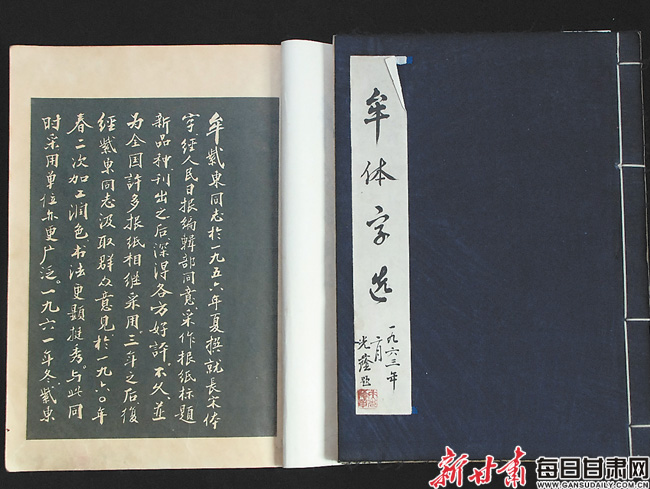 牟紫東同志於一九五六年夏撰就長宋体
字經人民日报編輯部同意采作报紙标題
新品种刊出之后深得各方好評.不久並
为全国許多报紙相继采用.三年之后復
經紫東同志汲取群众意見於一九六〇年
春二次加工潤色.书法更顯挺秀.与此同
时采用单位亦更广泛.一九六一年冬.紫東
牟体字选
一九六三年
二月
光 题
新甘肃
每日甘肃网
WWW.GANSUDAILY.COM.CN